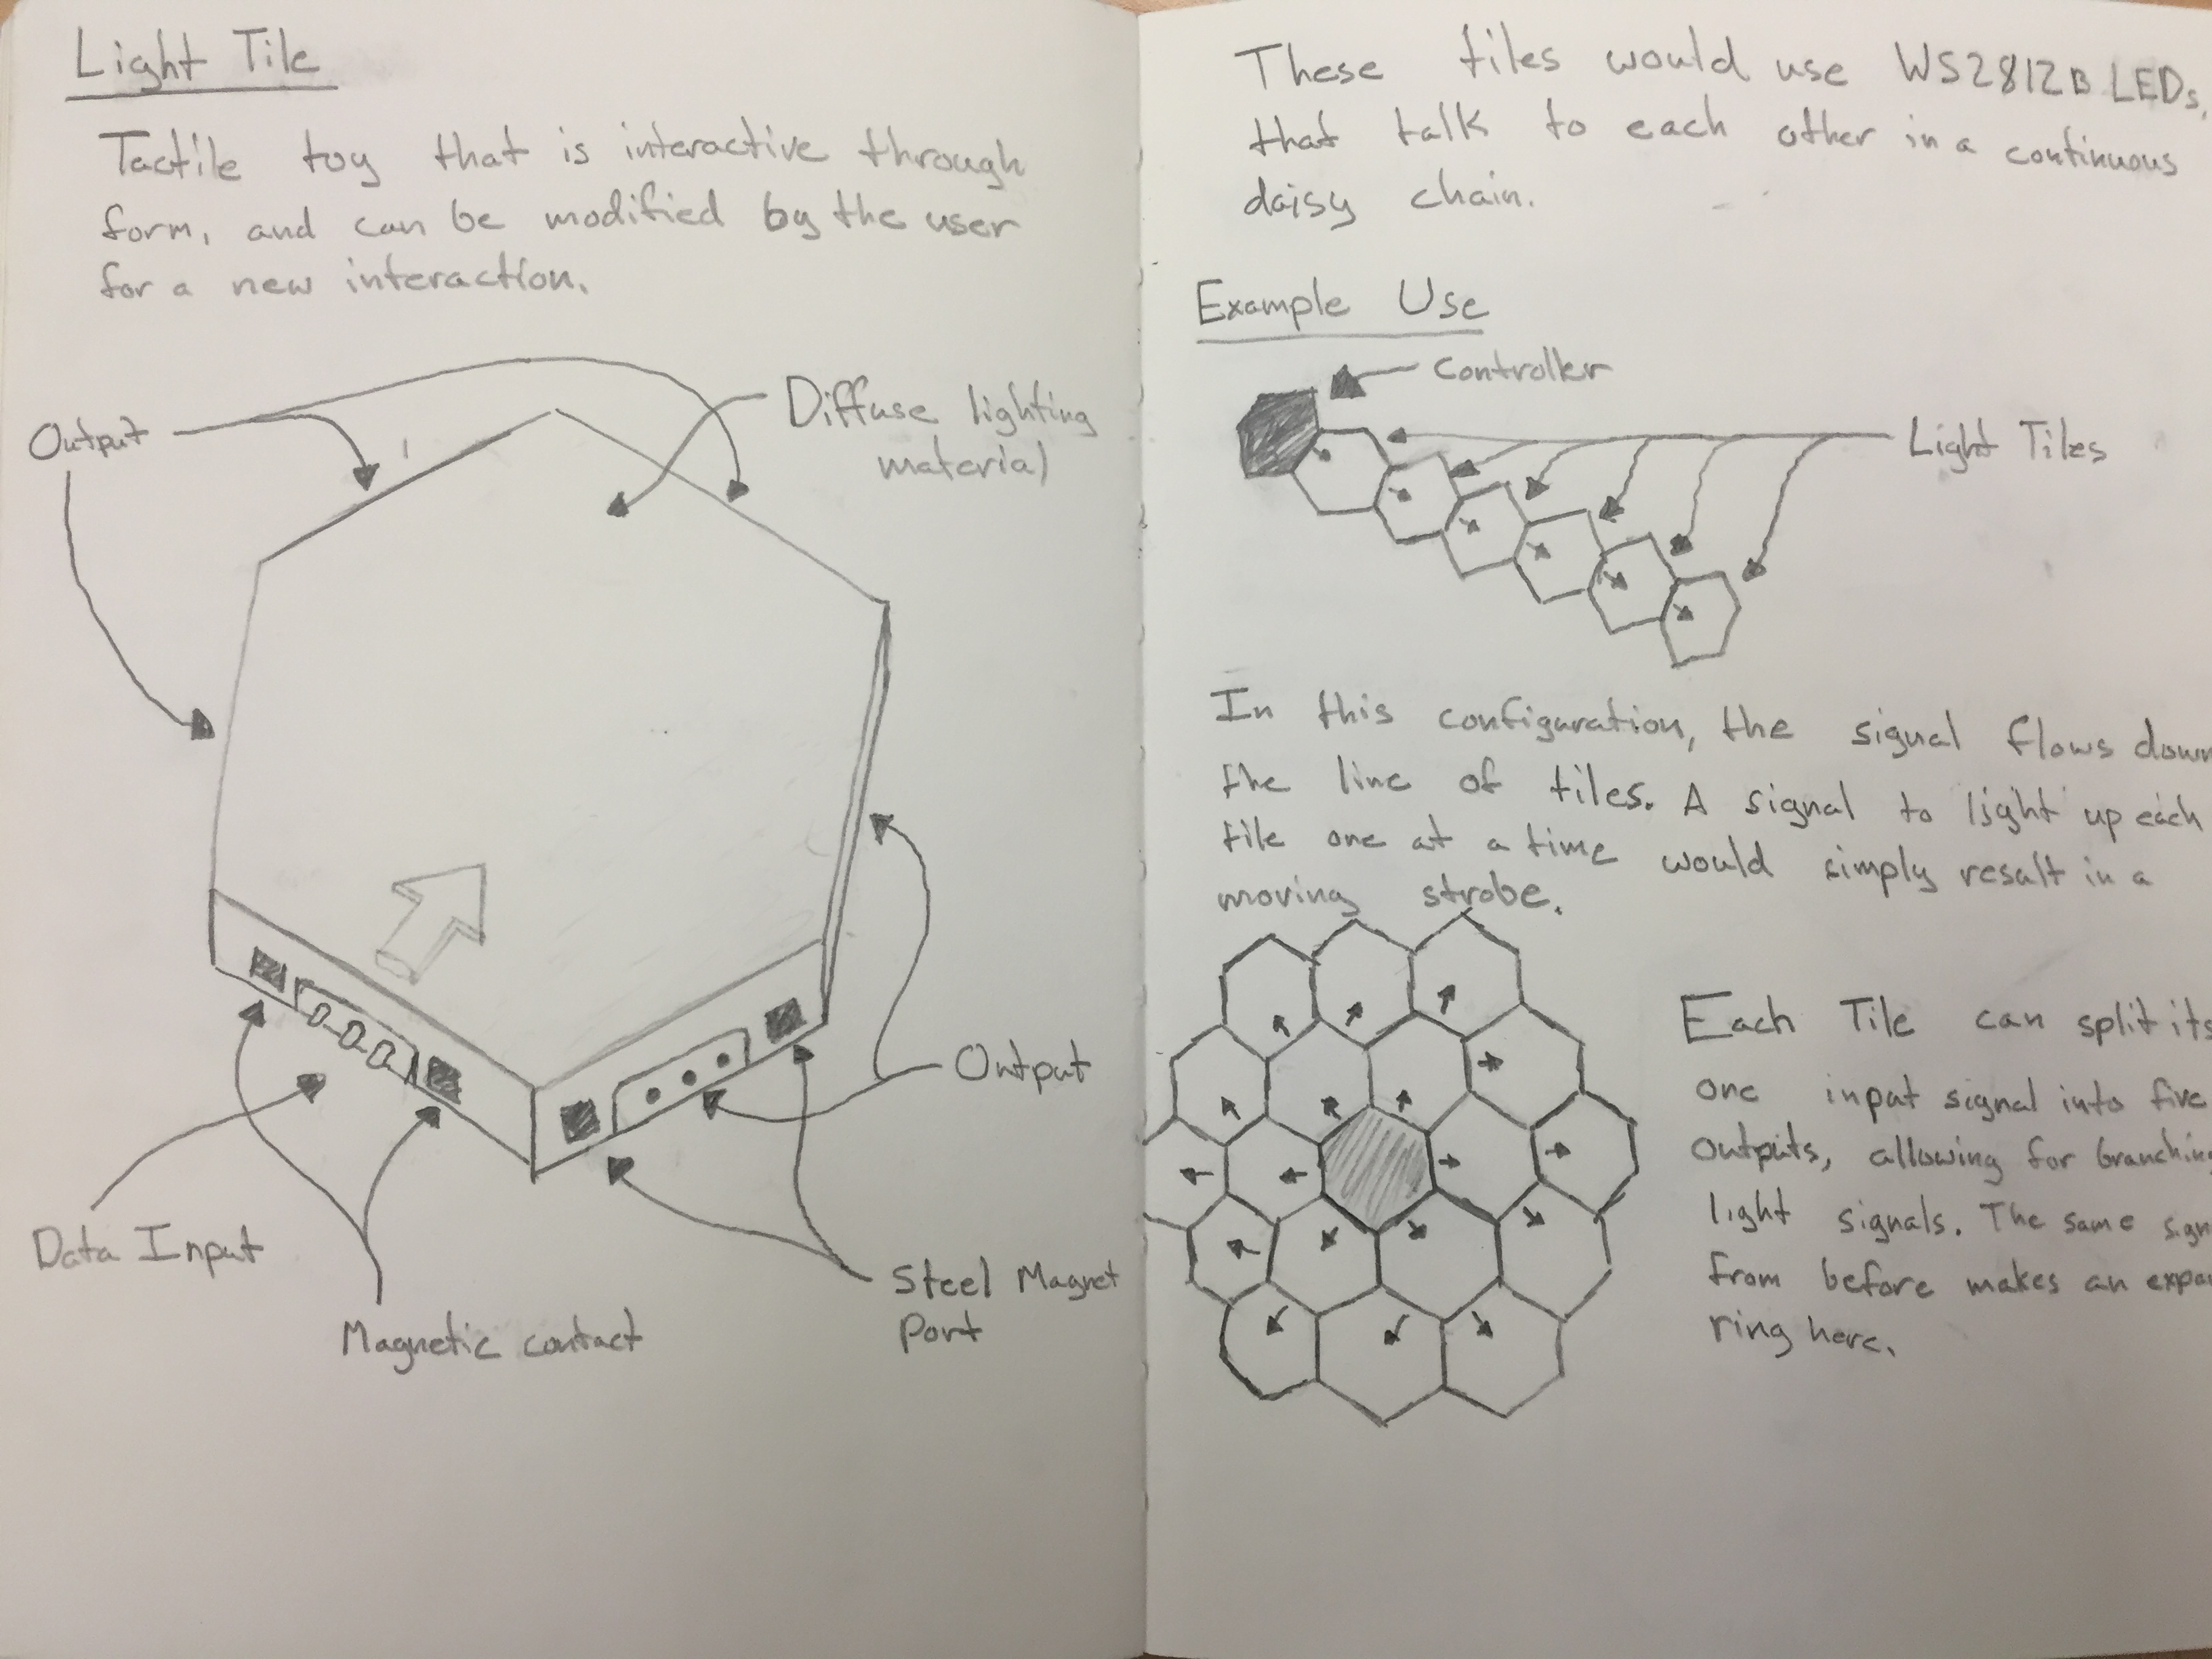 Light Tile
Tactile toy that is interactive through
form, and can be modified by the user
for a new interaction.
Output
Diffuse lighting
material
Output
Data Input
Magnetic contact
Steel Magnet
Port
These tiles would use WS2812B LEDs,
that talk to each other in a continuous
daisy chain.
Example Use
Controller
Light Tiles
In this configuration, the signal flows down
the line of tiles. A signal to light up each
tile one at a time would simply result in a
moving strobe.
Each Tile can split its
one input signal into five
outputs, allowing for branching
light signals. The same sign
from before makes an expa
ring here.